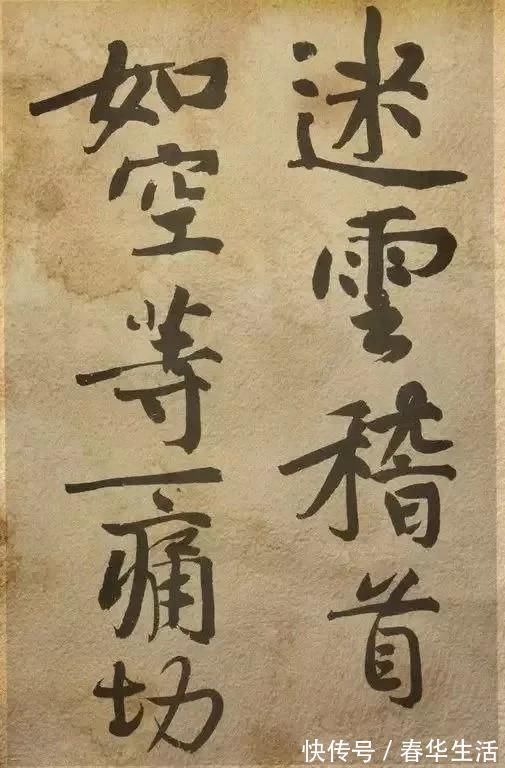 迷雲稽首
如空等一痛切
快传号 / 春华生活